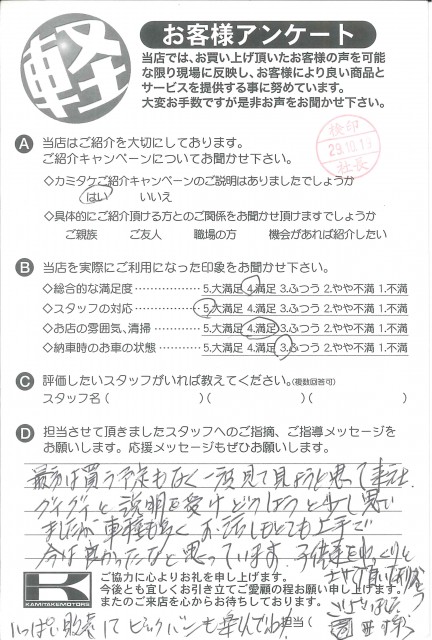 軽
お客様アンケート
当店では、お買い上げ頂いたお客様の声を可能
な限り現場に反映し、お客様により良い商品と
サービスを提供する事に努めています。
大変お手数ですが是非お声をお聞かせ下さい。
検印
29.10.13
社長
A 当店はご紹介を大切にしております。
ご紹介キャンペーンについてお聞かせ下さい。
◇カミタケご紹介キャンペーンのご説明はありましたでしょうか
はい いいえ
◇具体的にご紹介頂ける方とのご関係をお聞かせ頂けますでしょうか
ご親族 ご友人 職場の方 機会があれば紹介したい
B 当店を実際にご利用になった印象をお聞かせ下さい。
◇総合的な満足度 5.大満足 4.満足 3.ふつう 2.やや不満 1.不満
◇スタッフの対応 5.大満足 4.満足 3.ふつう 2.やや不満 1.不満
◇お店の雰囲気、清掃 5.大満足 4.満足 3.ふつう 2.やや不満 1.不満
◇納車時のお車の状態 5.大満足 4.満足 3.ふつう 2.やや不満 1.不満
C 評価したいスタッフがいれば教えてください。(複数回答可)
スタッフ名( )( )( )
D 担当させて頂きましたスタッフへのご指摘、ご指導メッセージを
お願いします。応援メッセージもぜひお願いします。
最初は買う予定もなく一度見て見ようと思って来た
グイグイと説明を受けどうしようと少し思い
ましたが車種も多くお話しもとても上手で
今は良かったなと思っています。子供達もゆっくりと
させて頂いた
K
KAMITAKEMOTORS
ご協力に心よりお礼を申し上げます。
今後とも宜しくお引き立てご愛顧の程お願い申し上げます。
またのご来店を心からお待ちしております。
いっぱい
担当(